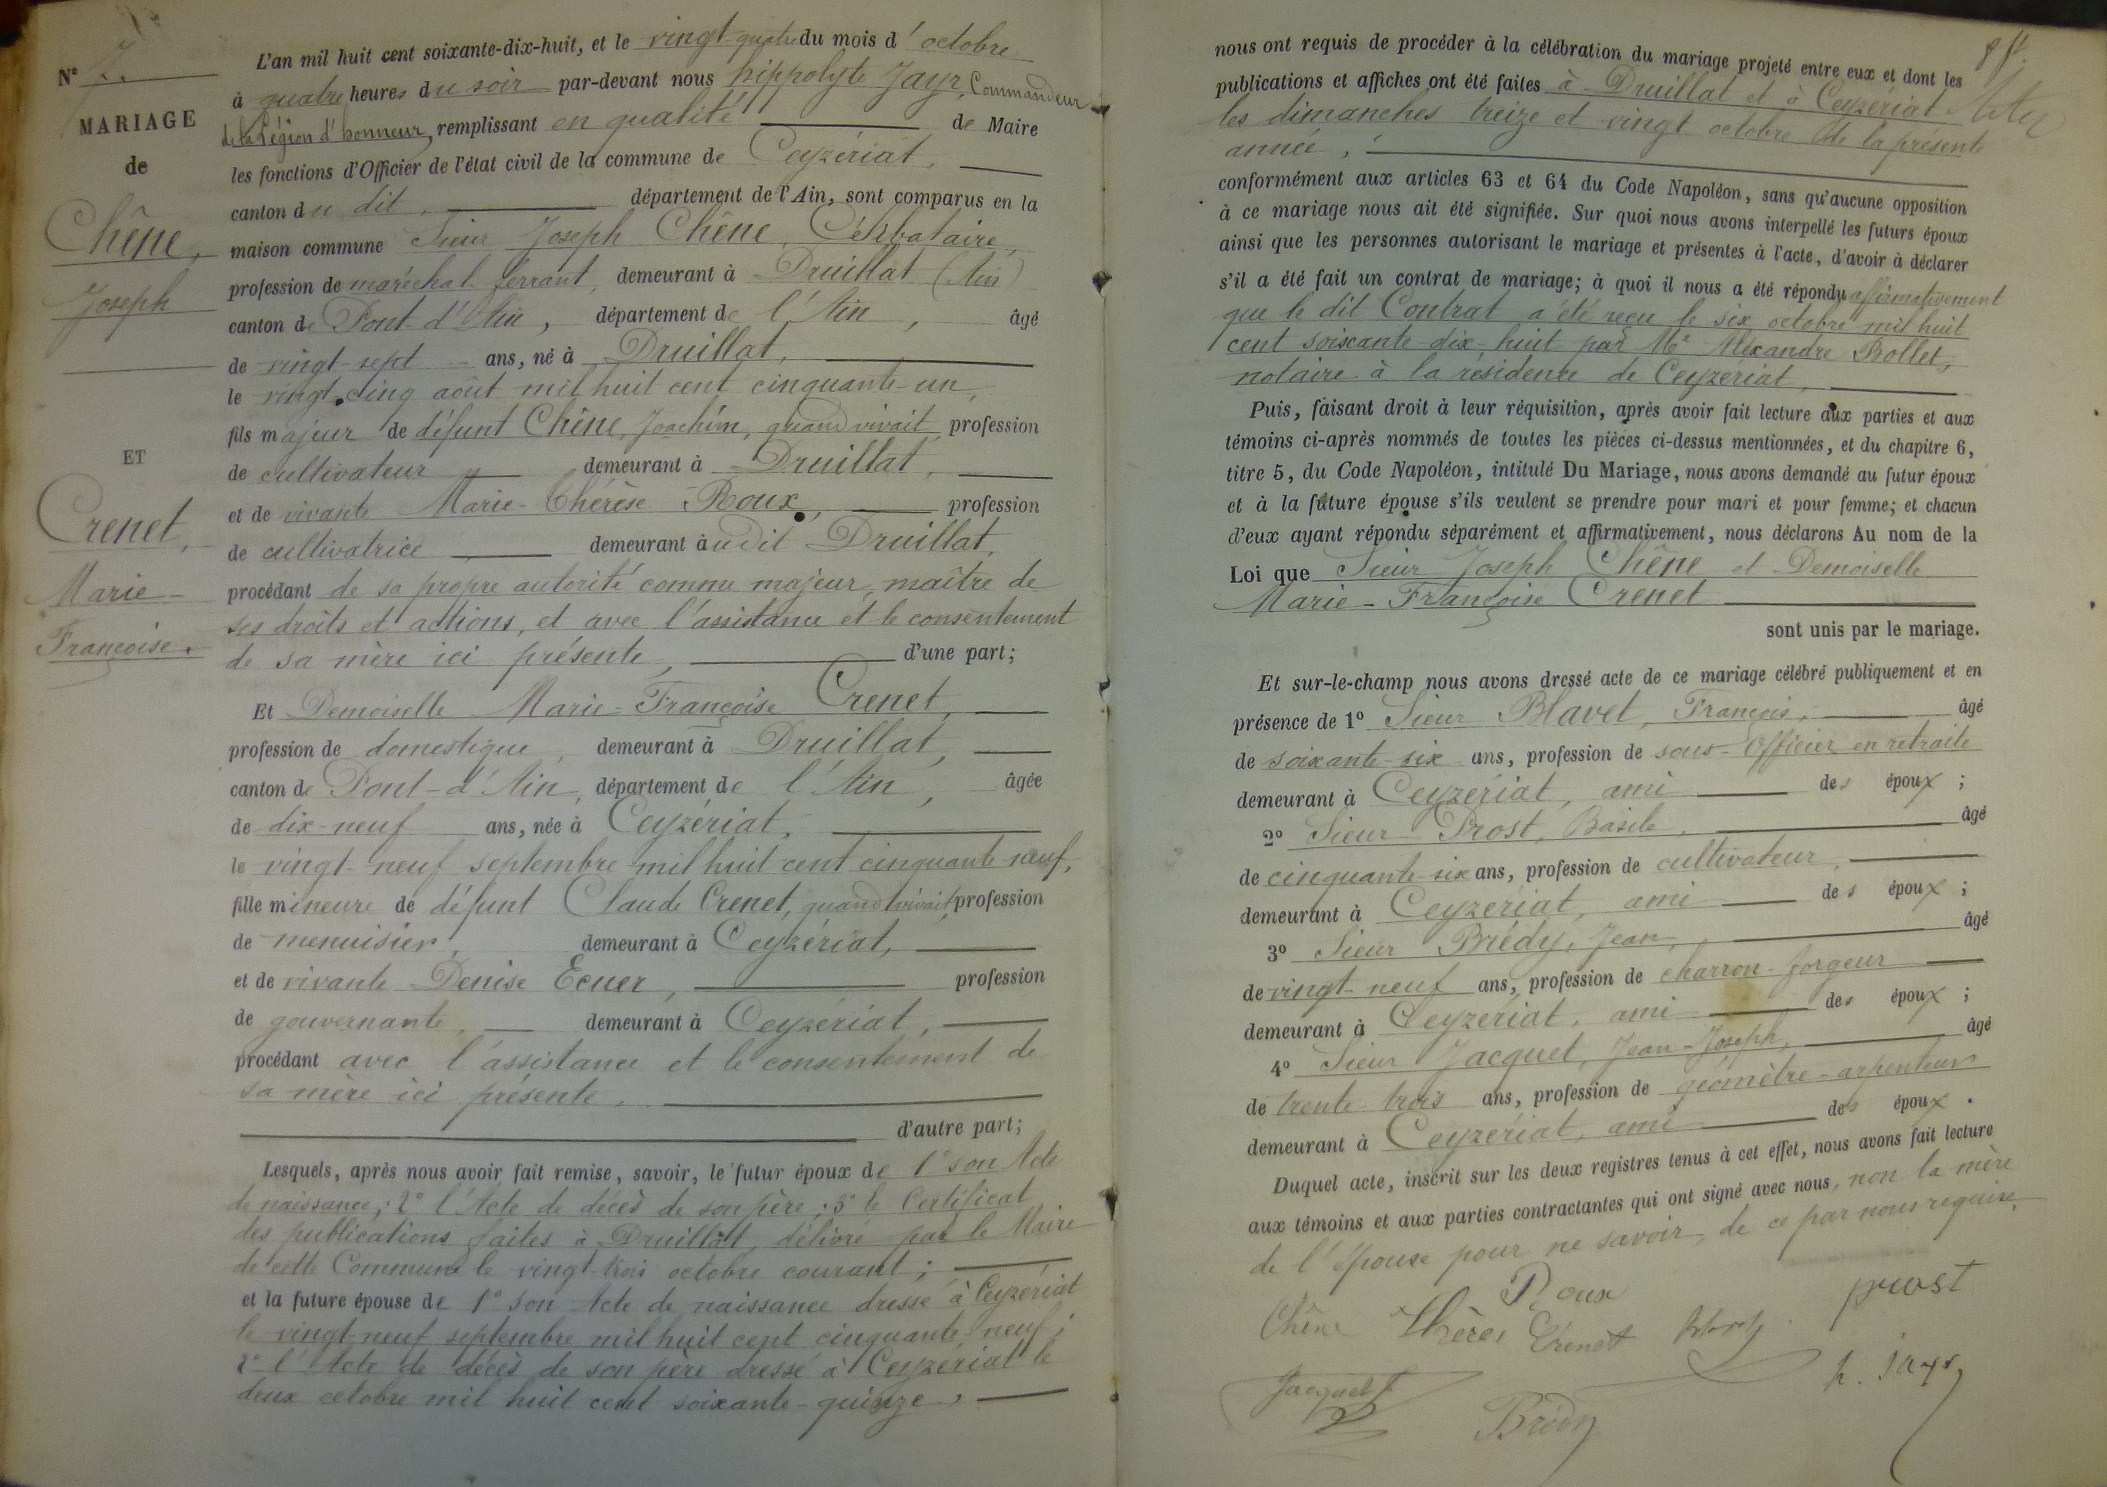 N° 7.
MARIAGE
de
Chêne,
Joseph
ET
Crenet,
Marie-
Françoise.
L'an mil huit cent soixante-dix-huit, et le vingt-quatre du mois d'octobre
à quatre heures du soir par-devant nous hippolyte Jayr, Commandeur
de la Légion d'honneur, remplissant en qualité de Maire
les fonctions d'Officier de l'état civil de la commune de Ceyzériat,
canton du dit, département de l'Ain, sont comparus en la
maison commune Sieur Joseph Chêne, Célibataire,
profession de maréchal ferrant, demeurant à Druillat (Ain)
canton de Pont-d'Ain, département de l'Ain, âgé
de vingt-sept ans, né à Druillat,
le vingt-cinq août mil huit cent cinquante-un,
fils majeur de défunt Chêne, Joachim, quand vivait, profession
de cultivateur demeurant à Druillat,
et de vivante Marie-Thérèse Roux, profession
de cultivatrice demeurant audit Druillat,
procédant de sa propre autorité comme majeur, maître de
ses droits et actions, et avec l'assistance et le consentement
de sa mère ici présente, d'une part;
Et Demoiselle Marie-Françoise Crenet,
profession de domestique, demeurant à Druillat,
canton de Pont-d'Ain, département de l'Ain, âgée
de dix-neuf ans, née à Ceyzériat,
le vingt-neuf septembre mil huit cent cinquante neuf,
fille mineure de défunt Claude Crenet, quand vivait, profession
de menuisier, demeurant à Ceyzériat,
et de vivante Denise Ecuer, profession
de gouvernante, demeurant à Ceyzériat,
procédant avec l'assistance et le consentement de
sa mère ici présente,
d'autre part;
Lesquels, après nous avoir fait remise, savoir, le futur époux de 1° son Acte
de naissance; 2° l'Acte de décès de son père; 3° le Certificat
des publications faites à Druillat, délivré par le Maire
de cette Commune le vingt-trois octobre courant;
et la future épouse de 1° son Acte de naissance dressé à Ceyzériat
le vingt-neuf septembre mil huit cent cinquante neuf;
2° l'Acte de décès de son père dressé à Ceyzériat le
deux octobre mil huit cent soixante-quinze,
nous ont requis de procéder à la célébration du mariage projeté entre eux et dont les
publications et affiches ont été faites à Druillat et à Ceyzériat
les dimanches treize et vingt octobre de la présente
année,
conformément aux articles 63 et 64 du Code Napoléon, sans qu'aucune opposition
à ce mariage nous ait été signifiée. Sur quoi nous avons interpellé les futurs époux
ainsi que les personnes autorisant le mariage et présentes à l'acte, d'avoir à déclarer
s'il a été fait un contrat de mariage; à quoi il nous a été répondu affirmativement
que le dit Contrat a été reçu le six octobre mil huit
cent soixante-dix-huit par Me Alexandre Rollet,
notaire à la résidence de Ceyzériat,
Puis, faisant droit à leur réquisition, après avoir fait lecture aux parties et aux
témoins ci-après nommés de toutes les pièces ci-dessus mentionnées, et du chapitre 6,
titre 5, du Code Napoléon, intitulé Du Mariage, nous avons demandé au futur époux
et à la future épouse s'ils veulent se prendre pour mari et pour femme; et chacun
d'eux ayant répondu séparément et affirmativement, nous déclarons Au nom de la
Loi que Sieur Joseph Chêne et Demoiselle
Marie-Françoise Crenet
sont unis par le mariage.
Et sur-le-champ nous avons dressé acte de ce mariage célébré publiquement et en
présence de 1° Sieur Blavet, François, âgé
de soixante-six ans, profession de sous-Officier en retraite
demeurant à Ceyzériat, ami des époux;
2° Sieur Prost, Basile, âgé
de cinquante-six ans, profession de cultivateur,
demeurant à Ceyzériat, ami des époux;
3° Sieur Brédy, Jean, âgé
de vingt-neuf ans, profession de charron-forgeur
demeurant à Ceyzériat, ami des époux;
4° Sieur Jacquet, Jean-Joseph, âgé
de trente-trois ans, profession de géomètre-arpenteur
demeurant à Ceyzériat, ami des époux.
Duquel acte, inscrit sur les deux registres tenus à cet effet, nous avons fait lecture
aux témoins et aux parties contractantes qui ont signé avec nous, non la mère
de l'épouse pour ne savoir, de ce par nous requise.
Roux
Chêne Thérès Crenet prost
Jacquet h. Jayr
Brédy